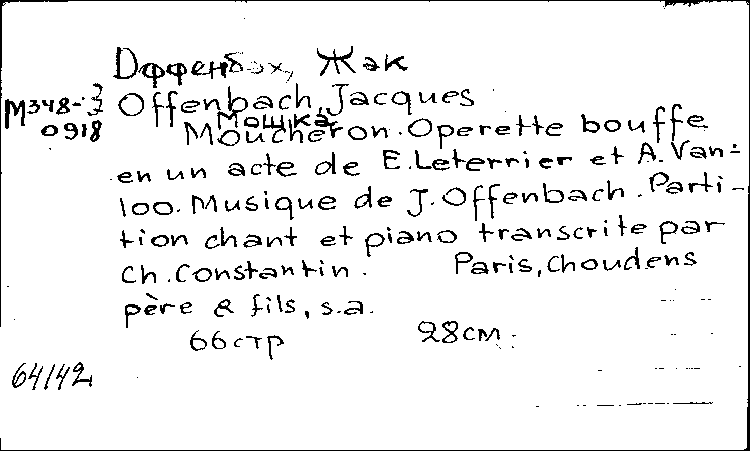 Оффенбах, Жак
М348-3
0918
Offenbach, Jacques
Мошка
Moucheron. Operette bouffe
en un acte de E. Leterrier et A. Van=
loo. Musique de J. Offenbach. Parti-
tion chant et piano transcrite par
Ch. Constantin. Paris, Choudens
père & fils, s.a.
66 стр 28 см.
64142